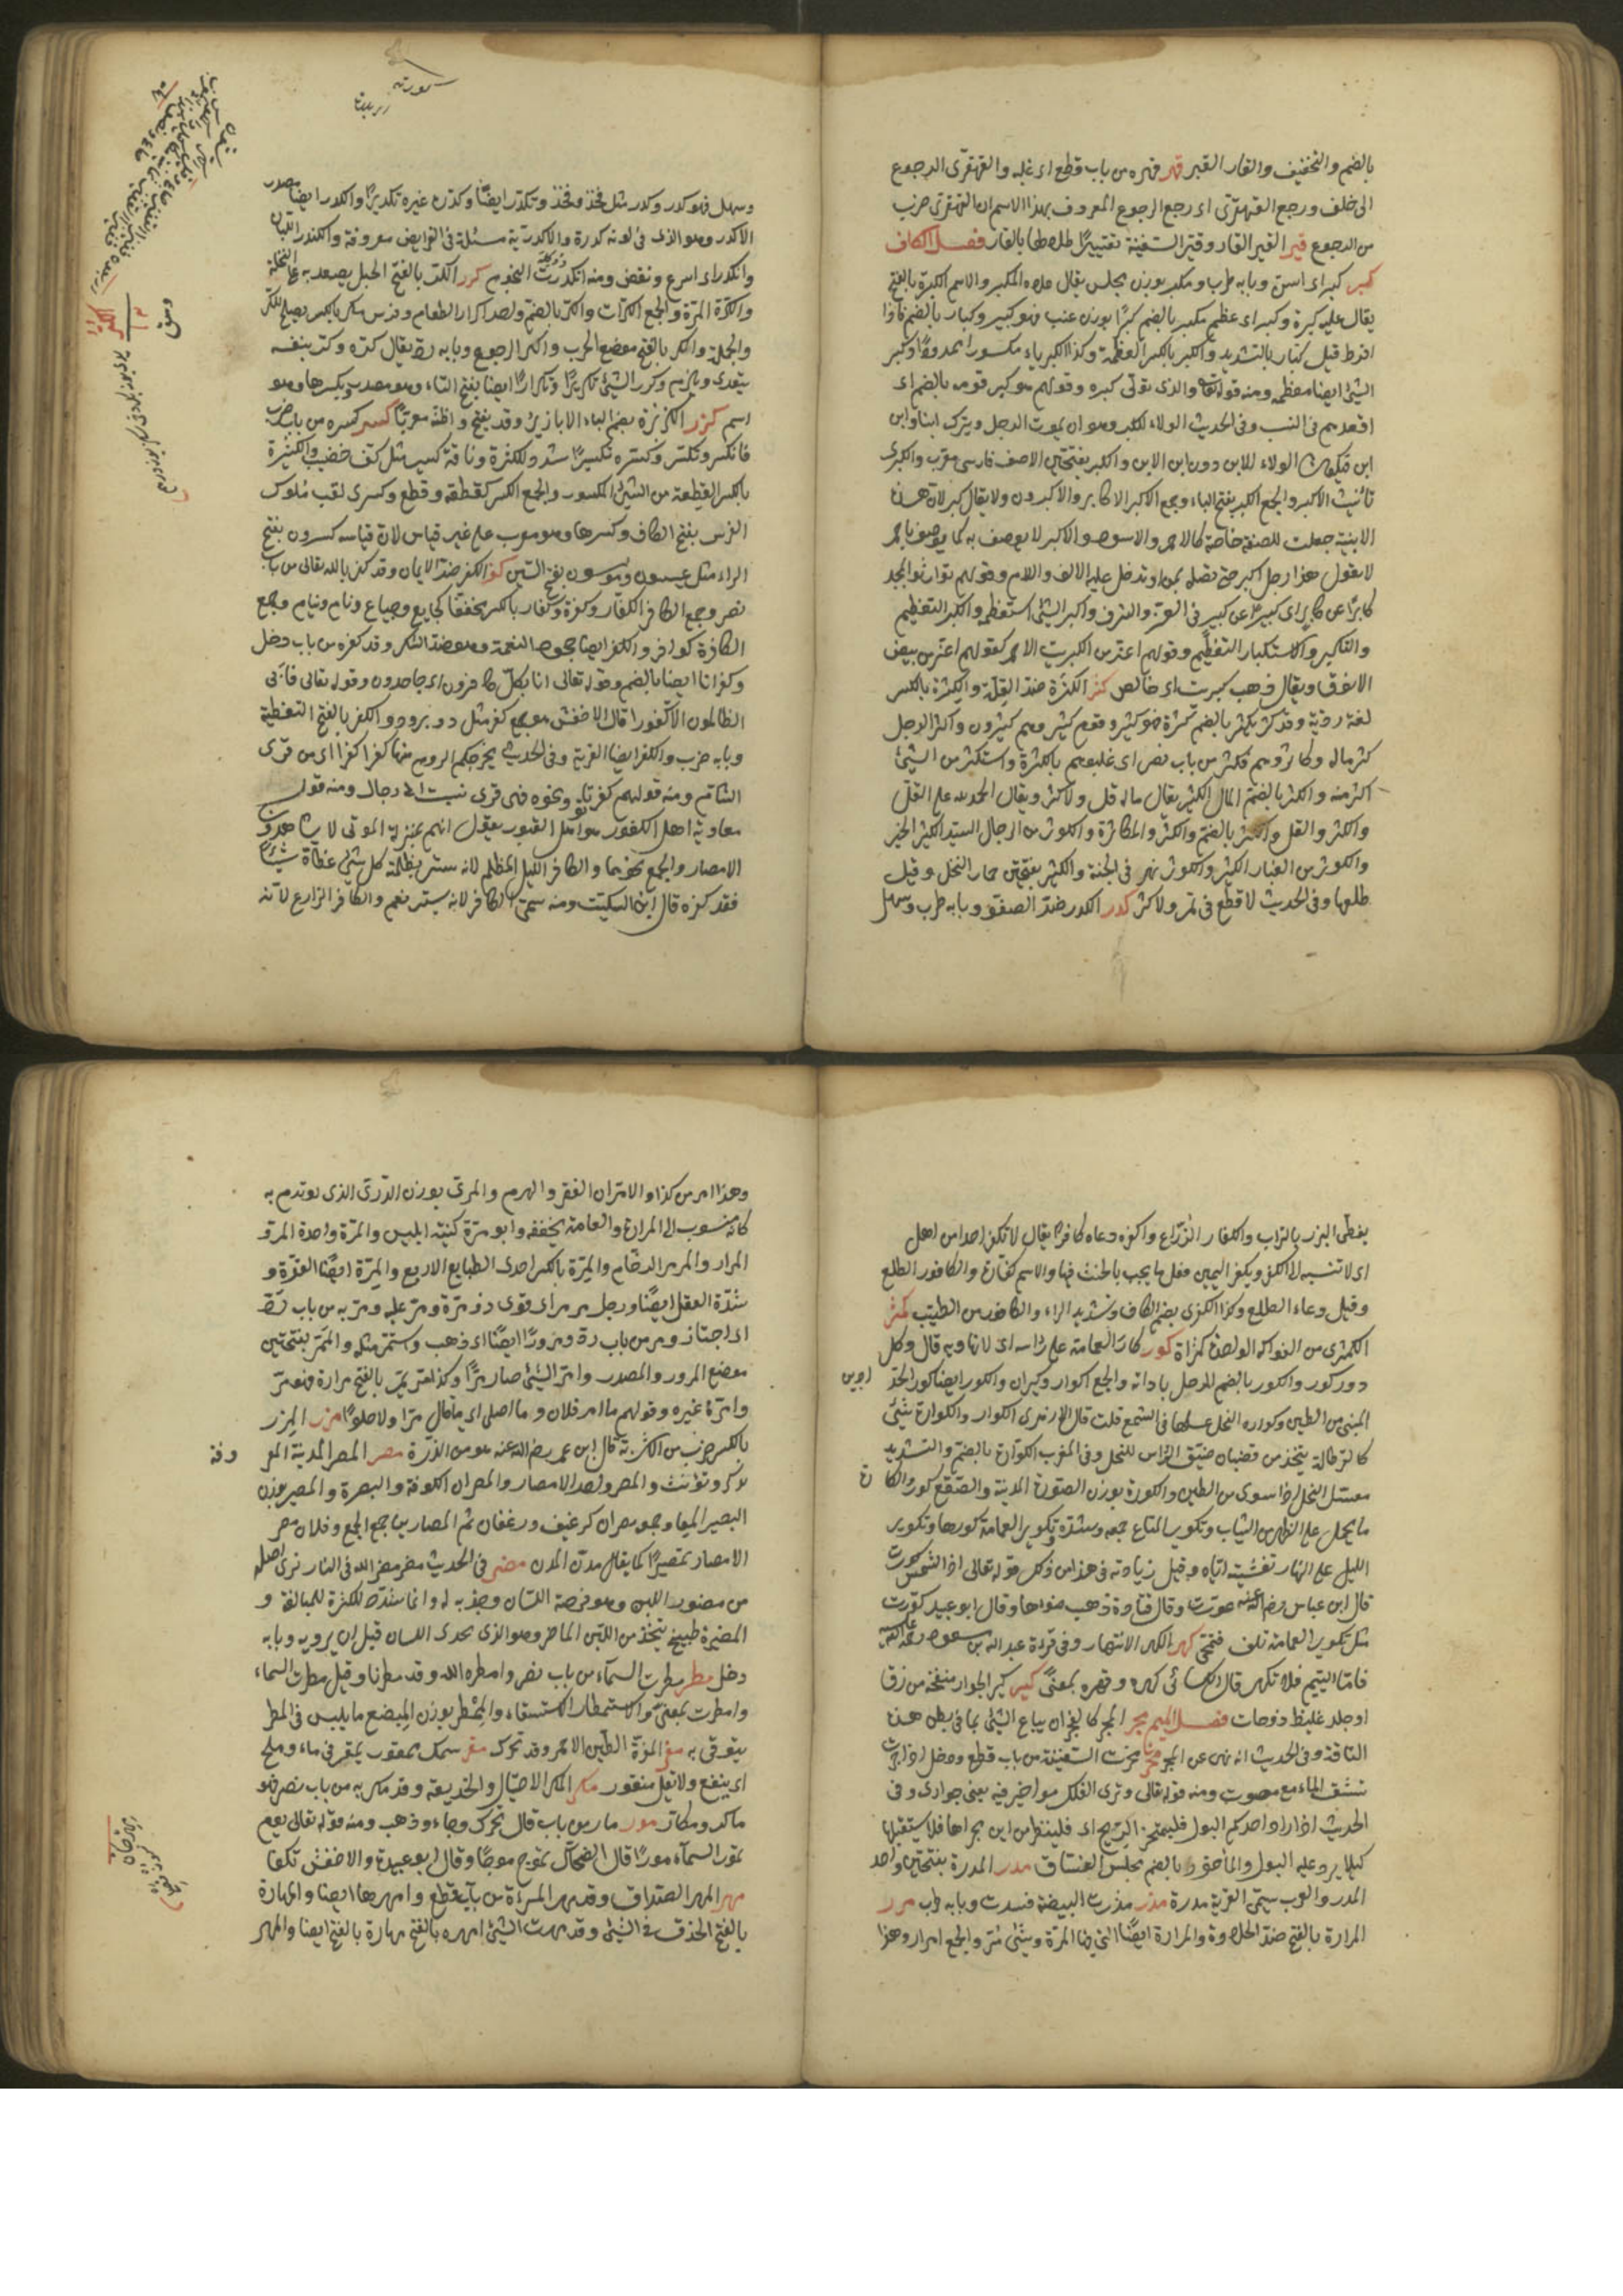 بالضم والتخفيف والقار القير قهر قهره من باب قطع اى غلبه والقهقرى الرجوع
الى خلف ورجع القهقرى اى رجع الرجوع المعروف بهذا الاسم لان القهقرى ضرب
من الرجوع قير القير القار وقير السفينة تقييرا طلاها بالقار فصل الكاف
كبر كبر اى اسن وبابه طرب ومكبر بوزن مجلس يقال علاه المكبر والاسم الكبرة بالفتح
يقال عليه كبرة وكبر اى عظم يكبر بالضم كبرا بوزن عنب فهو كبير وكبار بالضم فاذا
افرط قيل كبار بالتشديد والكبر بالكسر العظمة وكذا الكبرياء مكسورا ممدودا وكبر
الشئ ايضا معظمه ومنه قوله تعالى والذى تولى كبره وقولهم هو كبر قومه بالضم اى
اقعدهم فى النسب وفى الحديث الولاء للكبر وهو ان يموت الرجل ويترك ابنا وابن
ابن فيكون الولاء للابن دون ابن الابن والكبر بفتحتين الاصف فارسى معرب والكبرى
تانيث الاكبر والجمع الكبر بفتح الباء وجمع الاكبر الاكابر والاكبرون ولا يقال كبر لان هذه
الابنية جعلت للصفة خاصة كالاحمر والاسود والاكبر لا يوصف به كما يوصف باحمر
لا تقول هذا رجل اكبر حتى تصله بمن او تدخل عليه الالف واللام وقولهم توارثوا المجد
كابرا عن كابر اى كبيرا عن كبير فى العز والشرف واكبر الشئ استعظمه والتكبر التعظم
والتكبير والاستكبار التعظيم وقولهم اعز من الكبريت الاحمر كقولهم اعز من بيض
الانوق ويقال ذهب كبريت اى خالص كثر الكثرة ضد القلة والكثرة بالكسر
لغة ردية وقد كثر يكثر بالضم كثرة فهو كثير وقوم كثير وهم كثيرون واكثر الرجل
كثر ماله وكاثروهم فكثروهم من باب نصر اى غلبوهم بالكثرة واستكثر من الشئ
اكثر منه والكثر بالضم المال الكثير يقال ماله قل ولا كثر ويقال الحمد لله على القل
والكثر والقل والكثر بالضم والكسر والمكاثرة والكوثر من الرجال السيد الكثير الخير
والكوثر من الغبار الكثير والكوثر نهر فى الجنة والكثر بفتحتين جمار النخل وقيل
طلعها وفى الحديث لا قطع فى ثمر ولا كثر كدر الكدر ضد الصفو وبابه طرب وسهل
وسهل فهو كدر وكدر مثل فخذ وفخذ وتكدر ايضا وكدره غيره تكديرا والكدر ايضا مصدر
الاكدر وهو الذى فى لونه كدرة والاكدرية مسئلة فى الفرايض معروفة والكندر اللبان
وانكدر اى اسرع وانقض ومنه انكدرت النجوم كرر الكر بالفتح الحبل يصعد به على النخلة
والكرة المرة والجمع الكرات والكر بالضم واحد اكرار الطعام وفرس مكر بالكسر يصلح للكر
والحملة والمكر بالفتح موضع الحرب والكر الرجوع وبابه رد يقال كره وكر بنفسه
يتعدى ويلزم وكرر الشئ تكريرا وتكرارا ايضا بفتح التاء وهو مصدر وبكسرها وهو
اسم كزر الكزبرة بضم الباء الابازير وقد يفتح واظنه معربا كسر كسره من باب ضرب
فانكسر وتكسر وكسره تكسيرا شدد للكثرة وناقة كسير مثل كف خضيب والكسرة
بالكسر القطعة من الشئ المكسور والجمع الكسر كقطعة وقطع وكسرى لقب ملوك
الفرس بفتح الكاف وكسرها وهو معرب على غير قياس لان قياسه كسرون بفتح
الراء مثل عيسون وموسون بفتح السين كفر الكفر ضد الايمان وقد كفر بالله تعالى من باب
نصر وجمع الكافر الكفار وكفرة وكفار بالكسر مخففا كجايع وجياع ونائم ونيام وجمع
الكافرة كوافر والكفر ايضا جحود النعمة وهو ضد الشكر وقد كفره من باب دخل
وكفرانا ايضا بالضم وقوله تعالى انا بكل كافرون اى جاحدون وقوله تعالى فابى
الظالمون الا كفورا قال الاخفش هو جمع كفر مثل برد وبرود والكفر بالفتح التغطية
وبابه ضرب والكفر ايضا القرية وفى الحديث يخرجكم الروم منها كفرا كفرا اى من قرى
الشام ومنه قولهم كفر توثا ونحوه فهى قرى نسبت الى رجال ومنه قول
معاوية اهل الكفور هم اهل القبور يقول انهم بمنزلة الموتى لا يشاهدون
الامصار والجمع ونحوهما والكافر الليل المظلم لانه ستر بظلمته كل شئ غطاه شيئا
فقد كفره قال ابن السكيت ومنه سمى الكافر لانه يستر نعم والكافر الزارع لانه
يغطى البزر بالتراب والكفار الزراع واكفره دعاه كافرا يقال لا تكفر احدا من اهل
اى لا تنسبه الى الكفر وتكفير اليمين فعل ما يجب بالحنث فيها والاسم كفارة والكافور الطلع
وقيل وعاء الطلع وكذا الكفرى بضم الكاف وتشديد الراء والكافور من الطيب كمثر
الكمثرى من الفواكه الواحدة كمثراة كور كار العمامة على راسه اى لاثها وبه قال وكل
دور كور والكور بالضم الرحل باداته والجمع اكوار وكيران والكور ايضا كور الحداد
المبنى من الطين وكوارة النحل عسلها فى الشمع قلت قال الازهرى الكوار والكوارة شئ
كالقرطالة يتخذ من قضبان ضيق الراس للنحل وفى المغرب الكوارة بالضم والتشديد
معسل النحل اذا سوى من الطين والكورة بوزن الصورة المدينة والصقع كور والكارة
ما يحمل على الظهر من الثياب وتكوير المتاع جمعه وشده وتكوير العمامة كورها وتكوير
الليل على النهار تغشيته اياه وقيل زيادته فى هذا من ذلك قوله تعالى اذا الشمس كورت
قال ابن عباس رضى الله عنه غورت وقال قتادة ذهب ضوءها وقال ابو عبيد كورت
مثل تكوير العمامة تلف فتمحى كهر الكهر الانتهار وفى قراءة عبد الله بن مسعود رضى الله عنه
فاما اليتيم فلا تكهر قال الكسائى كهره وقهره بمعنى كير كير الحداد منفخه من زق
او جلد غليظ ذو حافات فصل الميم مجر المجر كالفجر ان يباع الشئ بما فى بطن هذه
الناقة وفى الحديث انه نهى عن المجر مخر مخرت السفينة من باب قطع ودخل اذا جرت
تشق الماء مع صوت ومنه قوله تعالى وترى الفلك مواخر فيه يعنى جوارى وفى
الحديث اذا اراد احدكم البول فليتمخر الريح اى فلينظر من اين مجراها فلا يستقبلها
كيلا يرد عليه البول والماخور بالضم مجلس الفساق مدر المدرة بفتحتين واحد
المدر والعرب تسمى القرية مدرة مذر مذرت البيضة فسدت وبابه طرب مرر
المرارة بالفتح ضد الحلاوة والمرارة ايضا التى فيها المرة وشئ مر والجمع امرار وهذا
وهذا امر من كذا والامران الفقر والهرم والمرى بوزن الدرى الذى يوتدم به
كانه منسوب الى المرارة والعامة تخففه وابو مرة كنية ابليس والمرة واحدة المر و
المرار والمرمر الرخام والمرة بالكسر احدى الطبايع الاربع والمرة ايضا القوة و
شدة العقل ايضا ورجل مرير اى قوى ذو مرة ومر عليه ومر به من باب رد
اى اجتاز ومر من باب رد ومرورا ايضا اى ذهب واستمر مثله والممر بفتحتين
موضع المرور والمصدر وامر الشئ صار مرا وكذا مر يمر بالفتح مرارة فهو مر
وامره غيره وقولهم ما امر فلان وما احلى اى ما قال مرا ولا حلوا مزر المزر
بالكسر ضرب من الاشربة قال ابن عمر رضى الله عنه هو من الذرة مصر المصر المدينة المعروفة
تذكر وتؤنث والمصر واحد الامصار والمصران الكوفة والبصرة والمصير بوزن
البصير المعا وجمعه مصران كرغيف ورغفان ثم المصارين جمع الجمع وفلان مصر
الامصار تمصيرا كما يقال مدن المدن مضر فى الحديث مضر مضرها الله فى النار نرى اصله
من مضور اللبن وهو قرصه اللسان وحذيه له وانما شدد للكثرة للمبالغة و
المضيرة طبيخ يتخذ من اللبن الماضر وهو الذى يحذى اللسان قبل ان يروب وبابه
دخل مطر مطرت السماء من باب نصر وامطره الله وقد مطرنا وقيل مطرت السماء
وامطرت بمعنى والاستمطار الاستسقاء والممطر بوزن المبضع ما يلبس فى المطر
يتوقى به مغر المغرة الطين الاحمر وقد تحرك مقر سمك ممقور يمقر فى ماء وملح
اى ينقع ولا تقل منقور مكر المكر الاحتيال والخديعة وقد مكر به من باب نصر فهو
ماكر ومكار مور مار من باب قال تحرك وجاء وذهب ومنه قوله تعالى يوم
تمور السماء مورا قال الضحاك تموج موجا وقال ابو عبيدة والاخفش تكفا
مهر المهر الصداق وقد مهر المراة من باب قطع وامهرها ايضا والمهارة
بالفتح الحذق فى الشئ وقد مهرت الشئ امهره بالفتح مهارة بالفتح ايضا والمهر